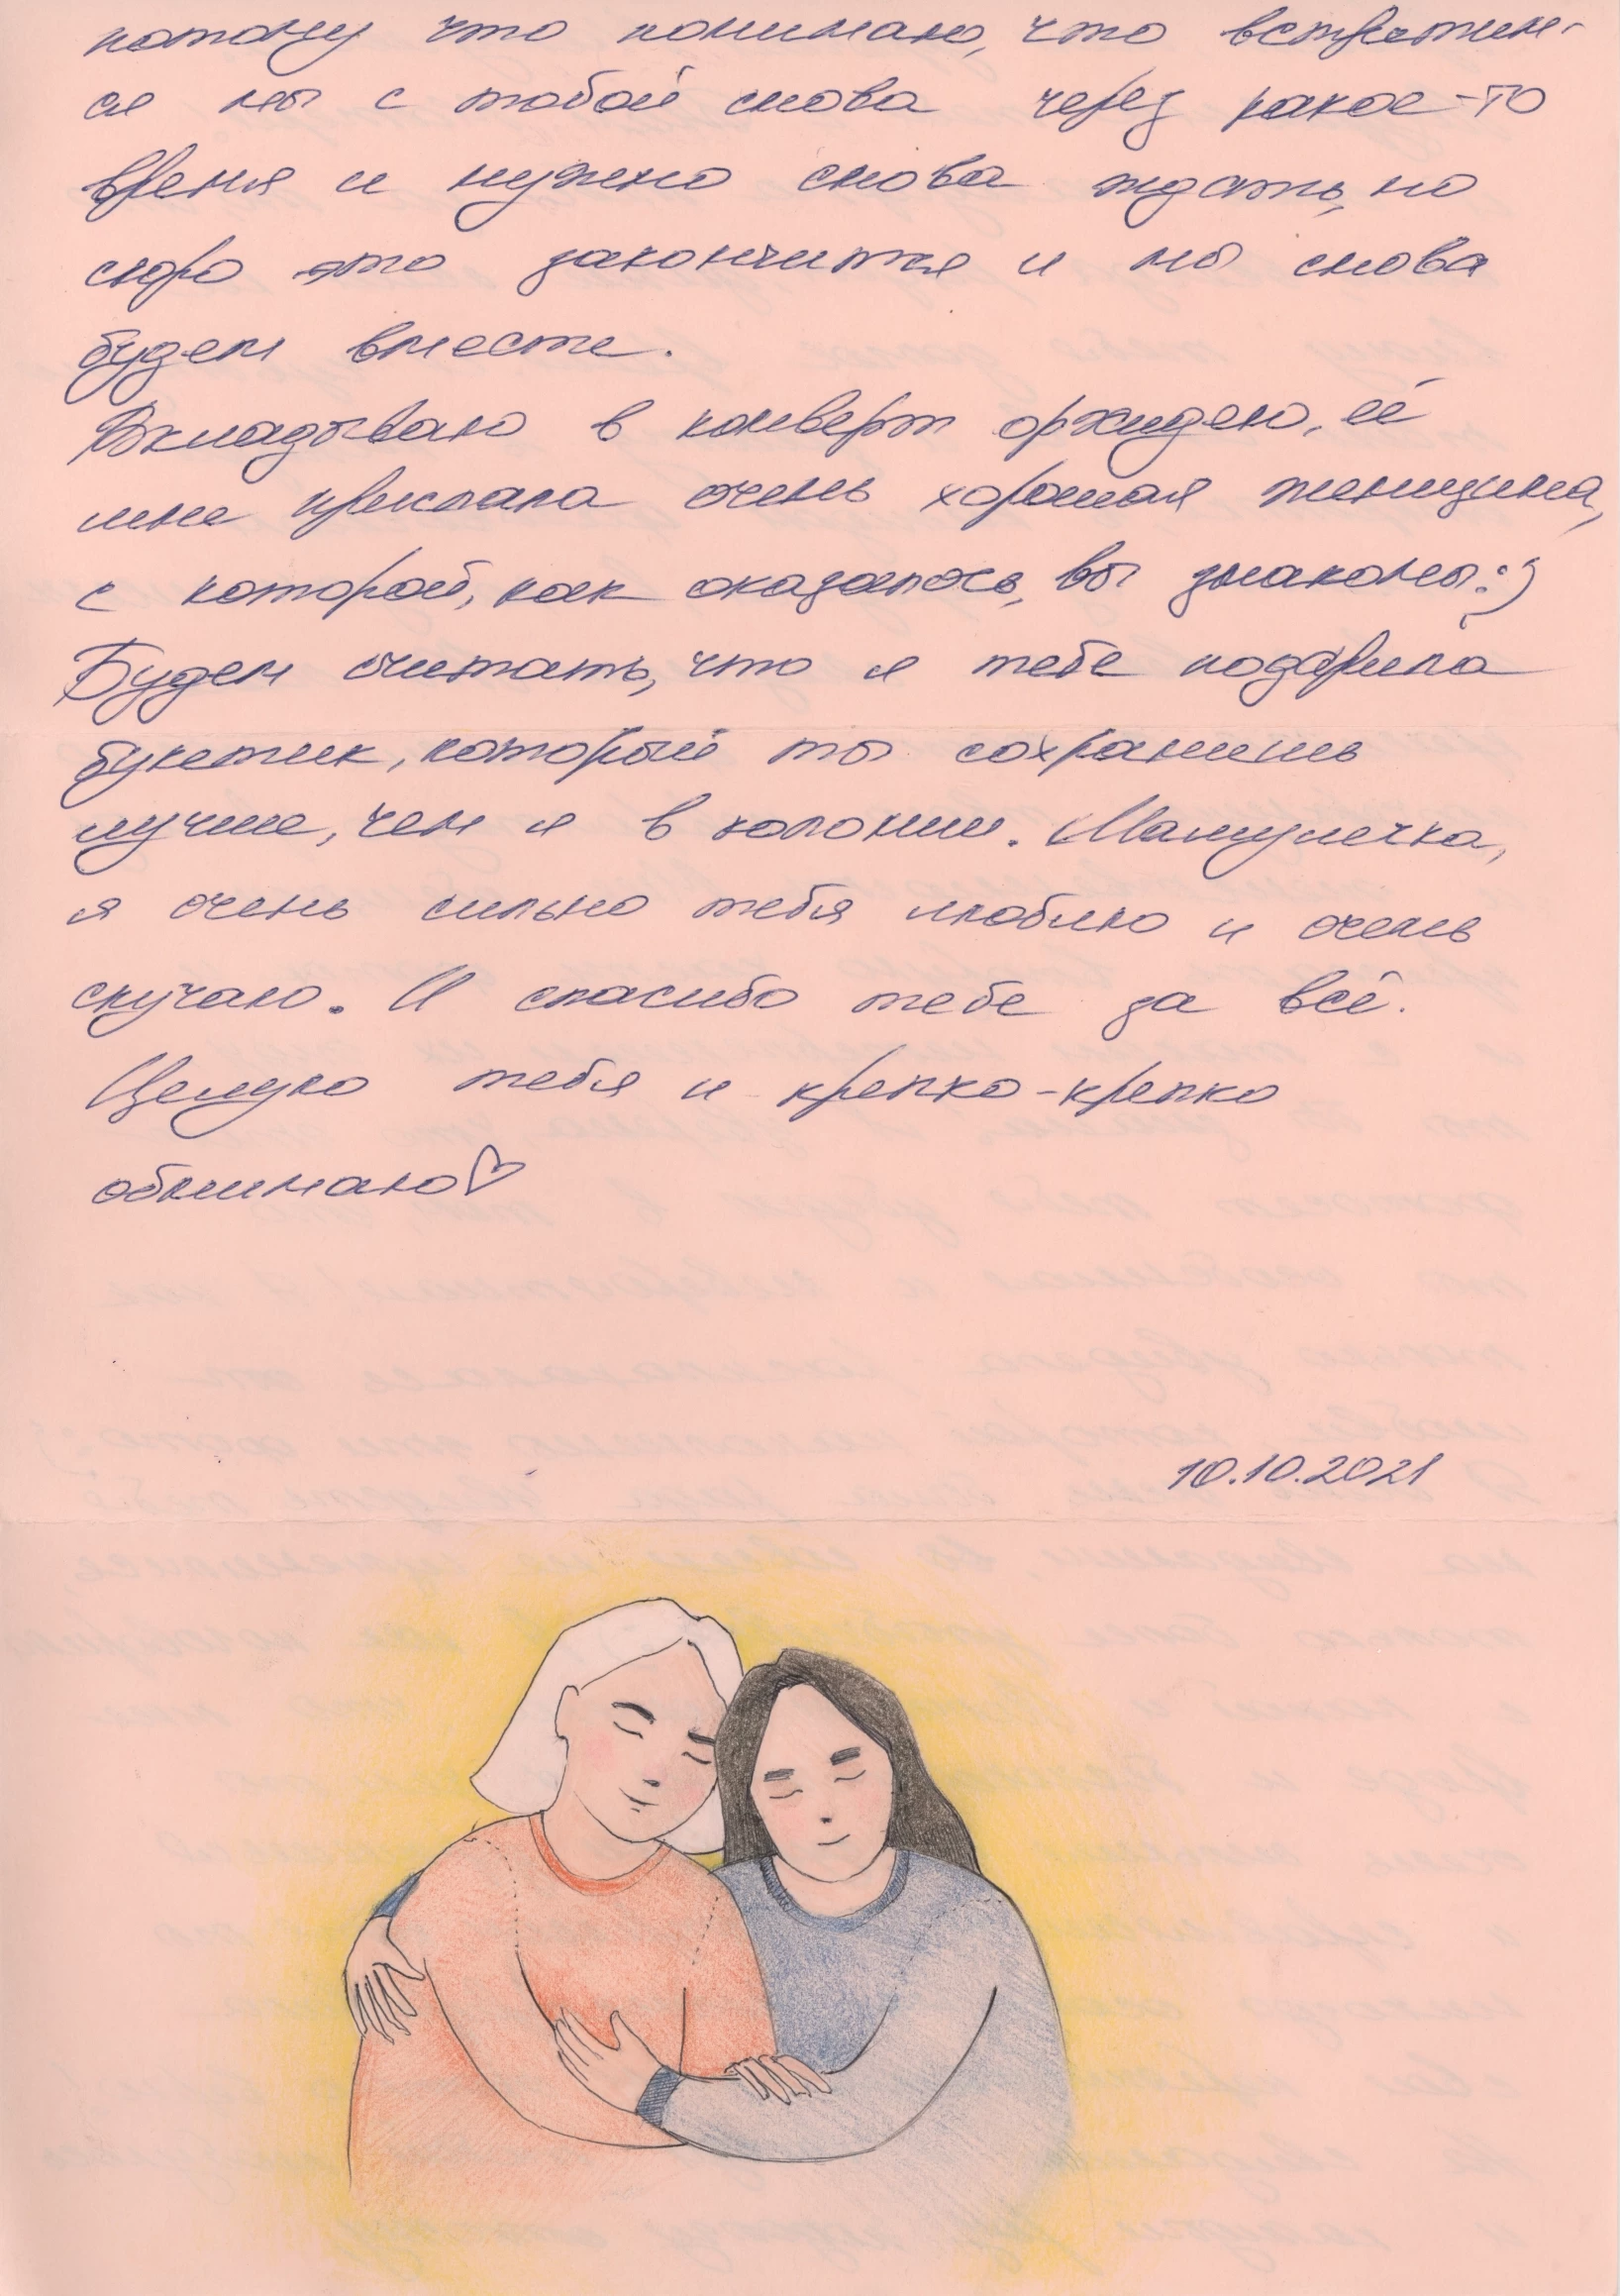 потому что понимаю, что встретим-
ся мы с тобой снова через какое-то
время и нужно снова ждать, но
скоро это закончится и мы снова
будем вместе.
Вкладываю в конверт орхидею, её
мне прислала очень хорошая женщина,
с которой, как оказалось, вы знакомы:)
Будем считать, что я тебе подарила
букетик, который ты сохранишь
лучше, чем я в колонии. Мамулечка,
я очень сильно тебя люблю и очень
скучаю. И спасибо тебе за всё.
Целую тебя и крепко-крепко
обнимаю♡
10.10.2021